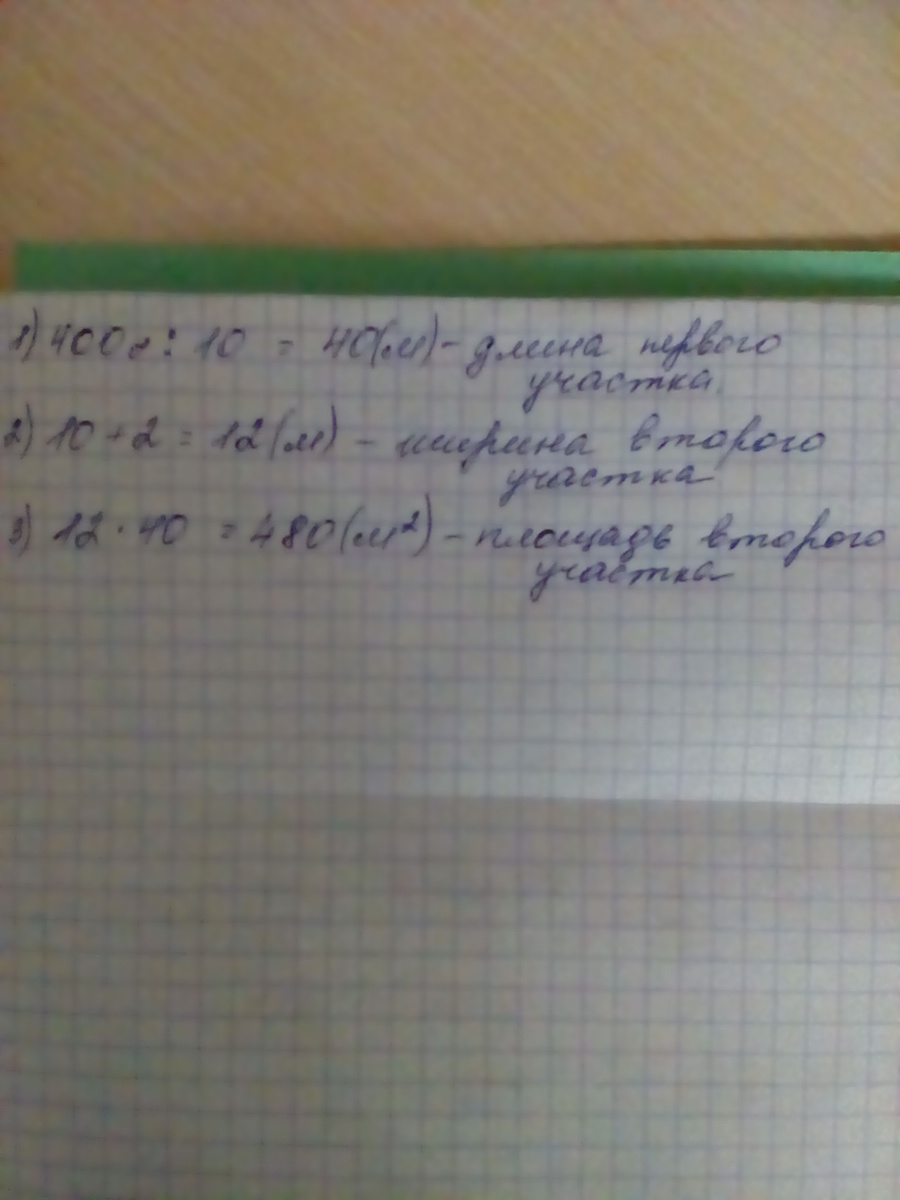 1) 400 : 10 = 40(м) - длина первого
участка.
2) 10 + 2 = 12 (м) - ширина второго
участка
3) 12 · 40 = 480 (м²) - площадь второго
участка